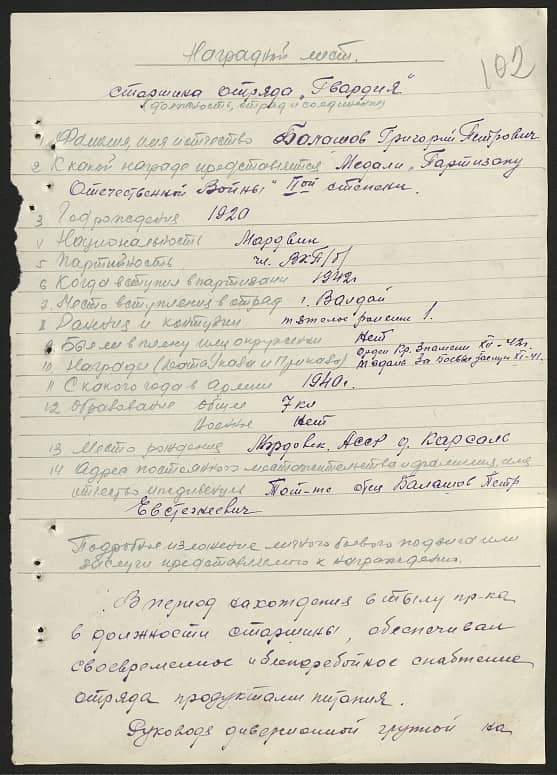 Наградной лист.
102
старшина отряда „Гвардия"
(должность, отряд и соединение)
1 Фамилия, имя и отчество Балашов Григорий Петрович
2 К какой награде представляется Медали „Партизану
Отечественной Войны" IIой степени.
3 Год рождения 1920
4 Национальность Мардвин
5 Партийность чл. ВКП/б/
6 Когда вступил в партизаны 1942г
7. Место вступления в отряд г. Валдай
8 Ранения и контузии тяжелое ранение 1.
9. Был ли в плену или окружении Нет
10 Награды (дата) указа и Приказа) Орден Кр. Знамени XII-42г.
медаль За боевые заслуги XI-41.
11 С какого года в армии 1940г.
12 Образование общее 7 кл
военное Нет
13 Место рождения Мордовск. АССР д. Карсаль
14 Адрес постоянного местожительства и фамилия, имя,
отчество Там-же отец Балашов Петр
Евстегневич
Подробное изложение личного боевого подвига или
заслуги представляемого к награждению.
В период нахождения в тылу пр-ка
в должности старшины, обеспечивал
своевременное и бесперебойное снабжение
отряда продуктами питания.
Руководя диверсионной группой на